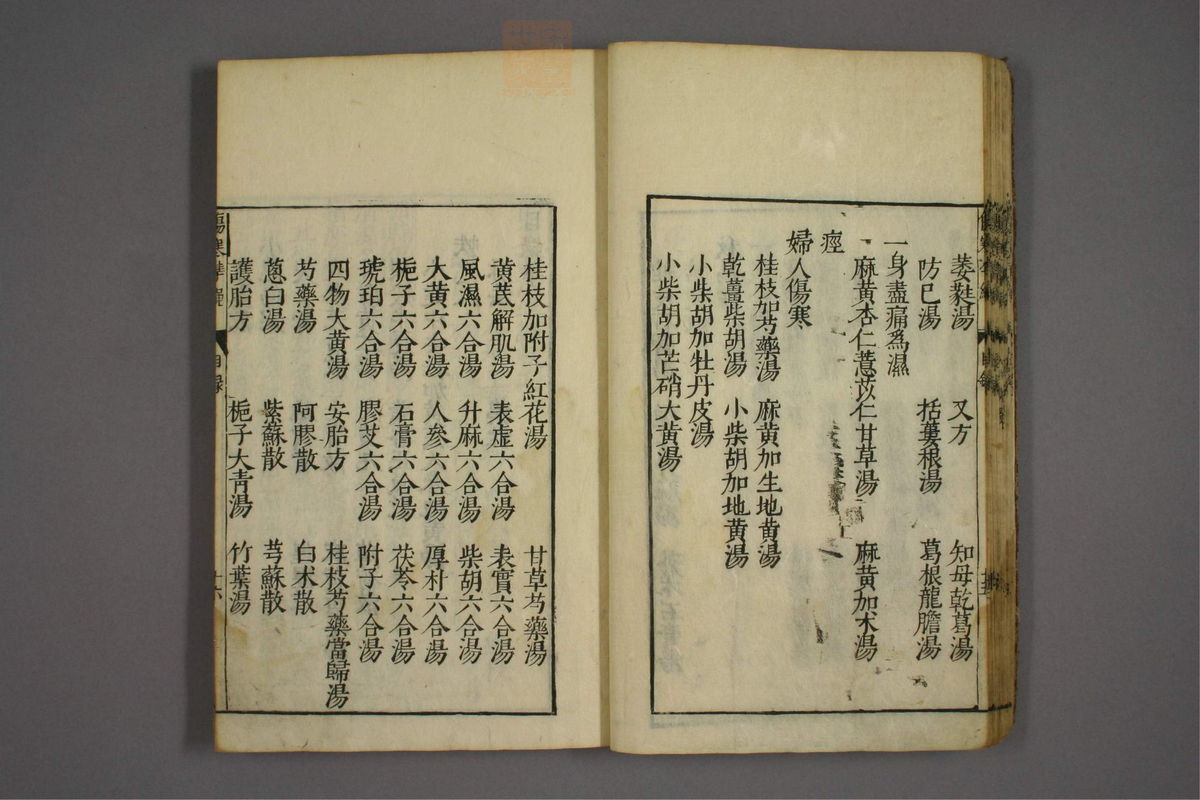 萎蕤湯 又方 知母乾葛湯
防已湯 括蔞根湯 葛根龍膽湯
一身盡痛爲濕
麻黄杏仁薏苡仁甘草湯 麻黄加术湯
痙
婦人傷寒
桂枝加芍藥湯 麻黄加生地黄湯
乾薑柴胡湯 小柴胡加地黄湯
小柴胡加牡丹皮湯
小柴胡加芒硝大黄湯
桂枝加附子紅花湯 甘草芍藥湯
黄芪解肌湯 表虚六合湯 表實六合湯
風濕六合湯 升麻六合湯 柴胡六合湯
大黄六合湯 人參六合湯 厚朴六合湯
梔子六合湯 石膏六合湯 茯苓六合湯
琥珀六合湯 膠艾六合湯 附子六合湯
四物大黄湯 安胎方 桂枝芍藥當歸湯
芍藥湯 阿膠散 白术散
蔥白湯 紫蘇散 芎蘇散
護胎方 梔子大青湯 竹葉湯
目錄 十六